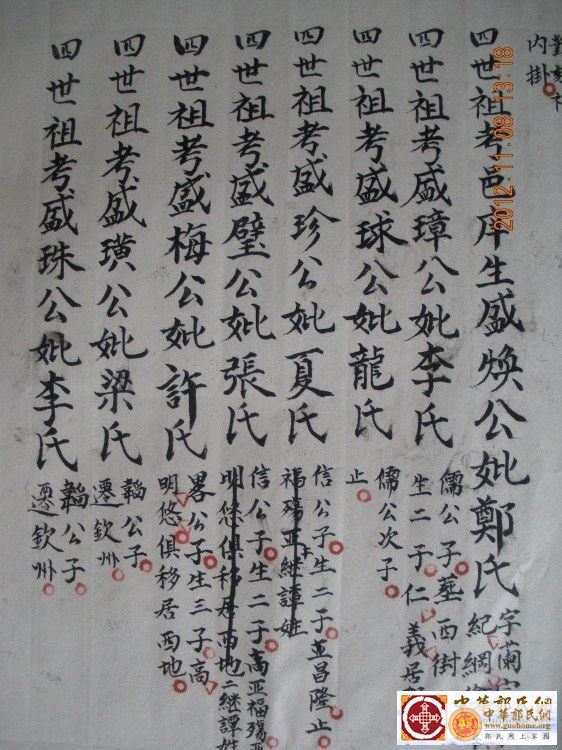 對刻祔
内掛
四世祖考邑庠生盛煥公妣鄭氏
字蘭
紀綱
四世祖考盛璋公妣李氏
儒公子葬西街
生二子仁義居
四世祖考盛球公妣龍氏
儒公次子
止
四世祖考盛珍公妣夏氏
信公子生二子並昌隆止
福殤亚繼譚姓
四世祖考盛璧公妣張氏
信公子生二子高亚福殤亚
明悠俱移居西地二繼譚姓
四世祖考盛梅公妣許氏
畧公子生三子高
明悠俱移居西地
四世祖考盛璜公妣梁氏
韜公子
遷欽州
四世祖考盛珠公妣李氏
韜公子
遷欽州
2012.11.08 13:18
中華郭氏網
中華郭氏網
www.guohome.org
郭氏網上家園